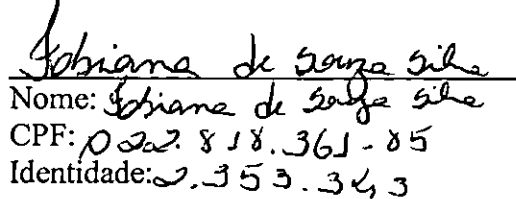 Fabiana de Souza Silva
Nome: Fabiana de Souza Silva
CPF: 022.818.361-85
Identidade: 2.353.343